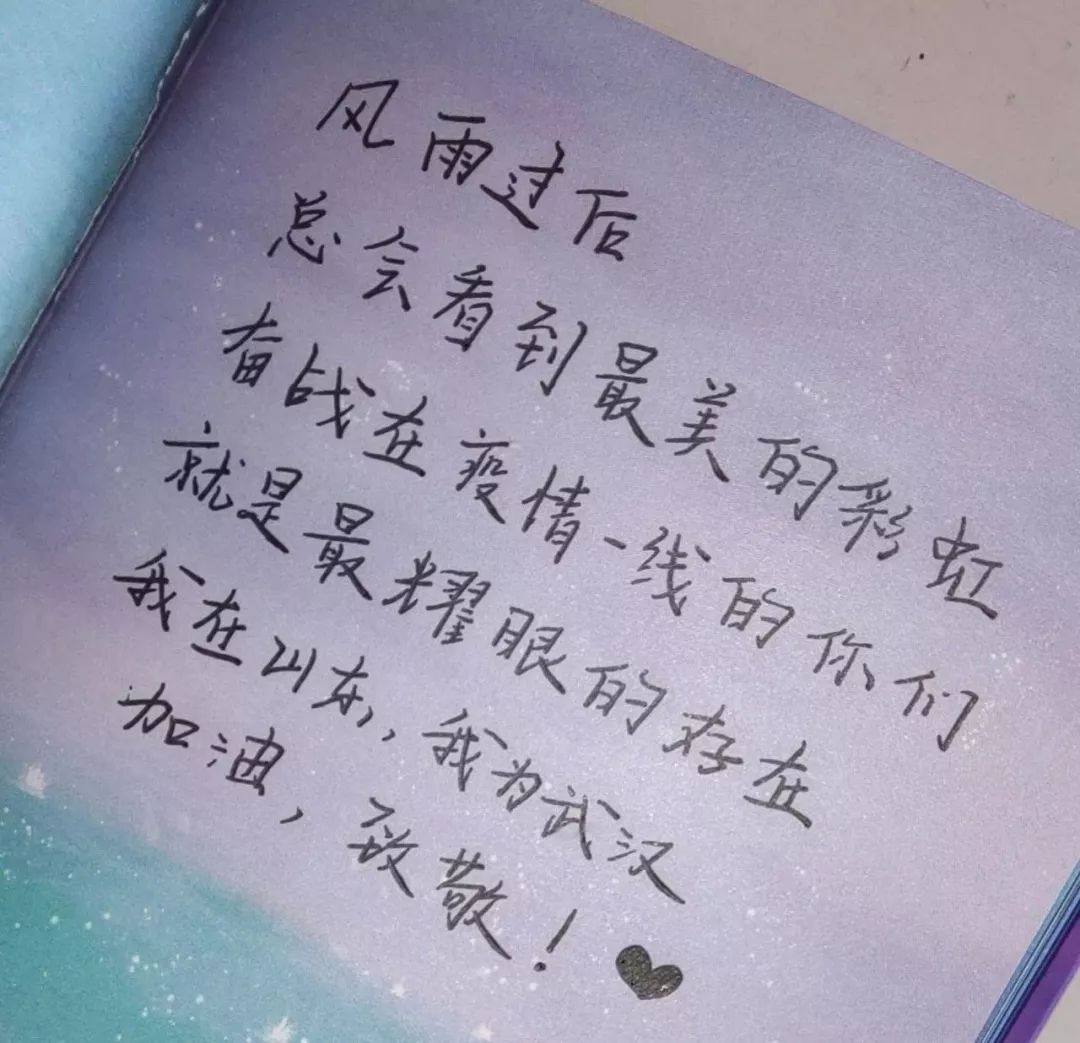 风雨过后
总会看到最美的彩虹
奋战在疫情一线的你们
就是最耀眼的存在
我在山东,我为武汉
加油,致敬!